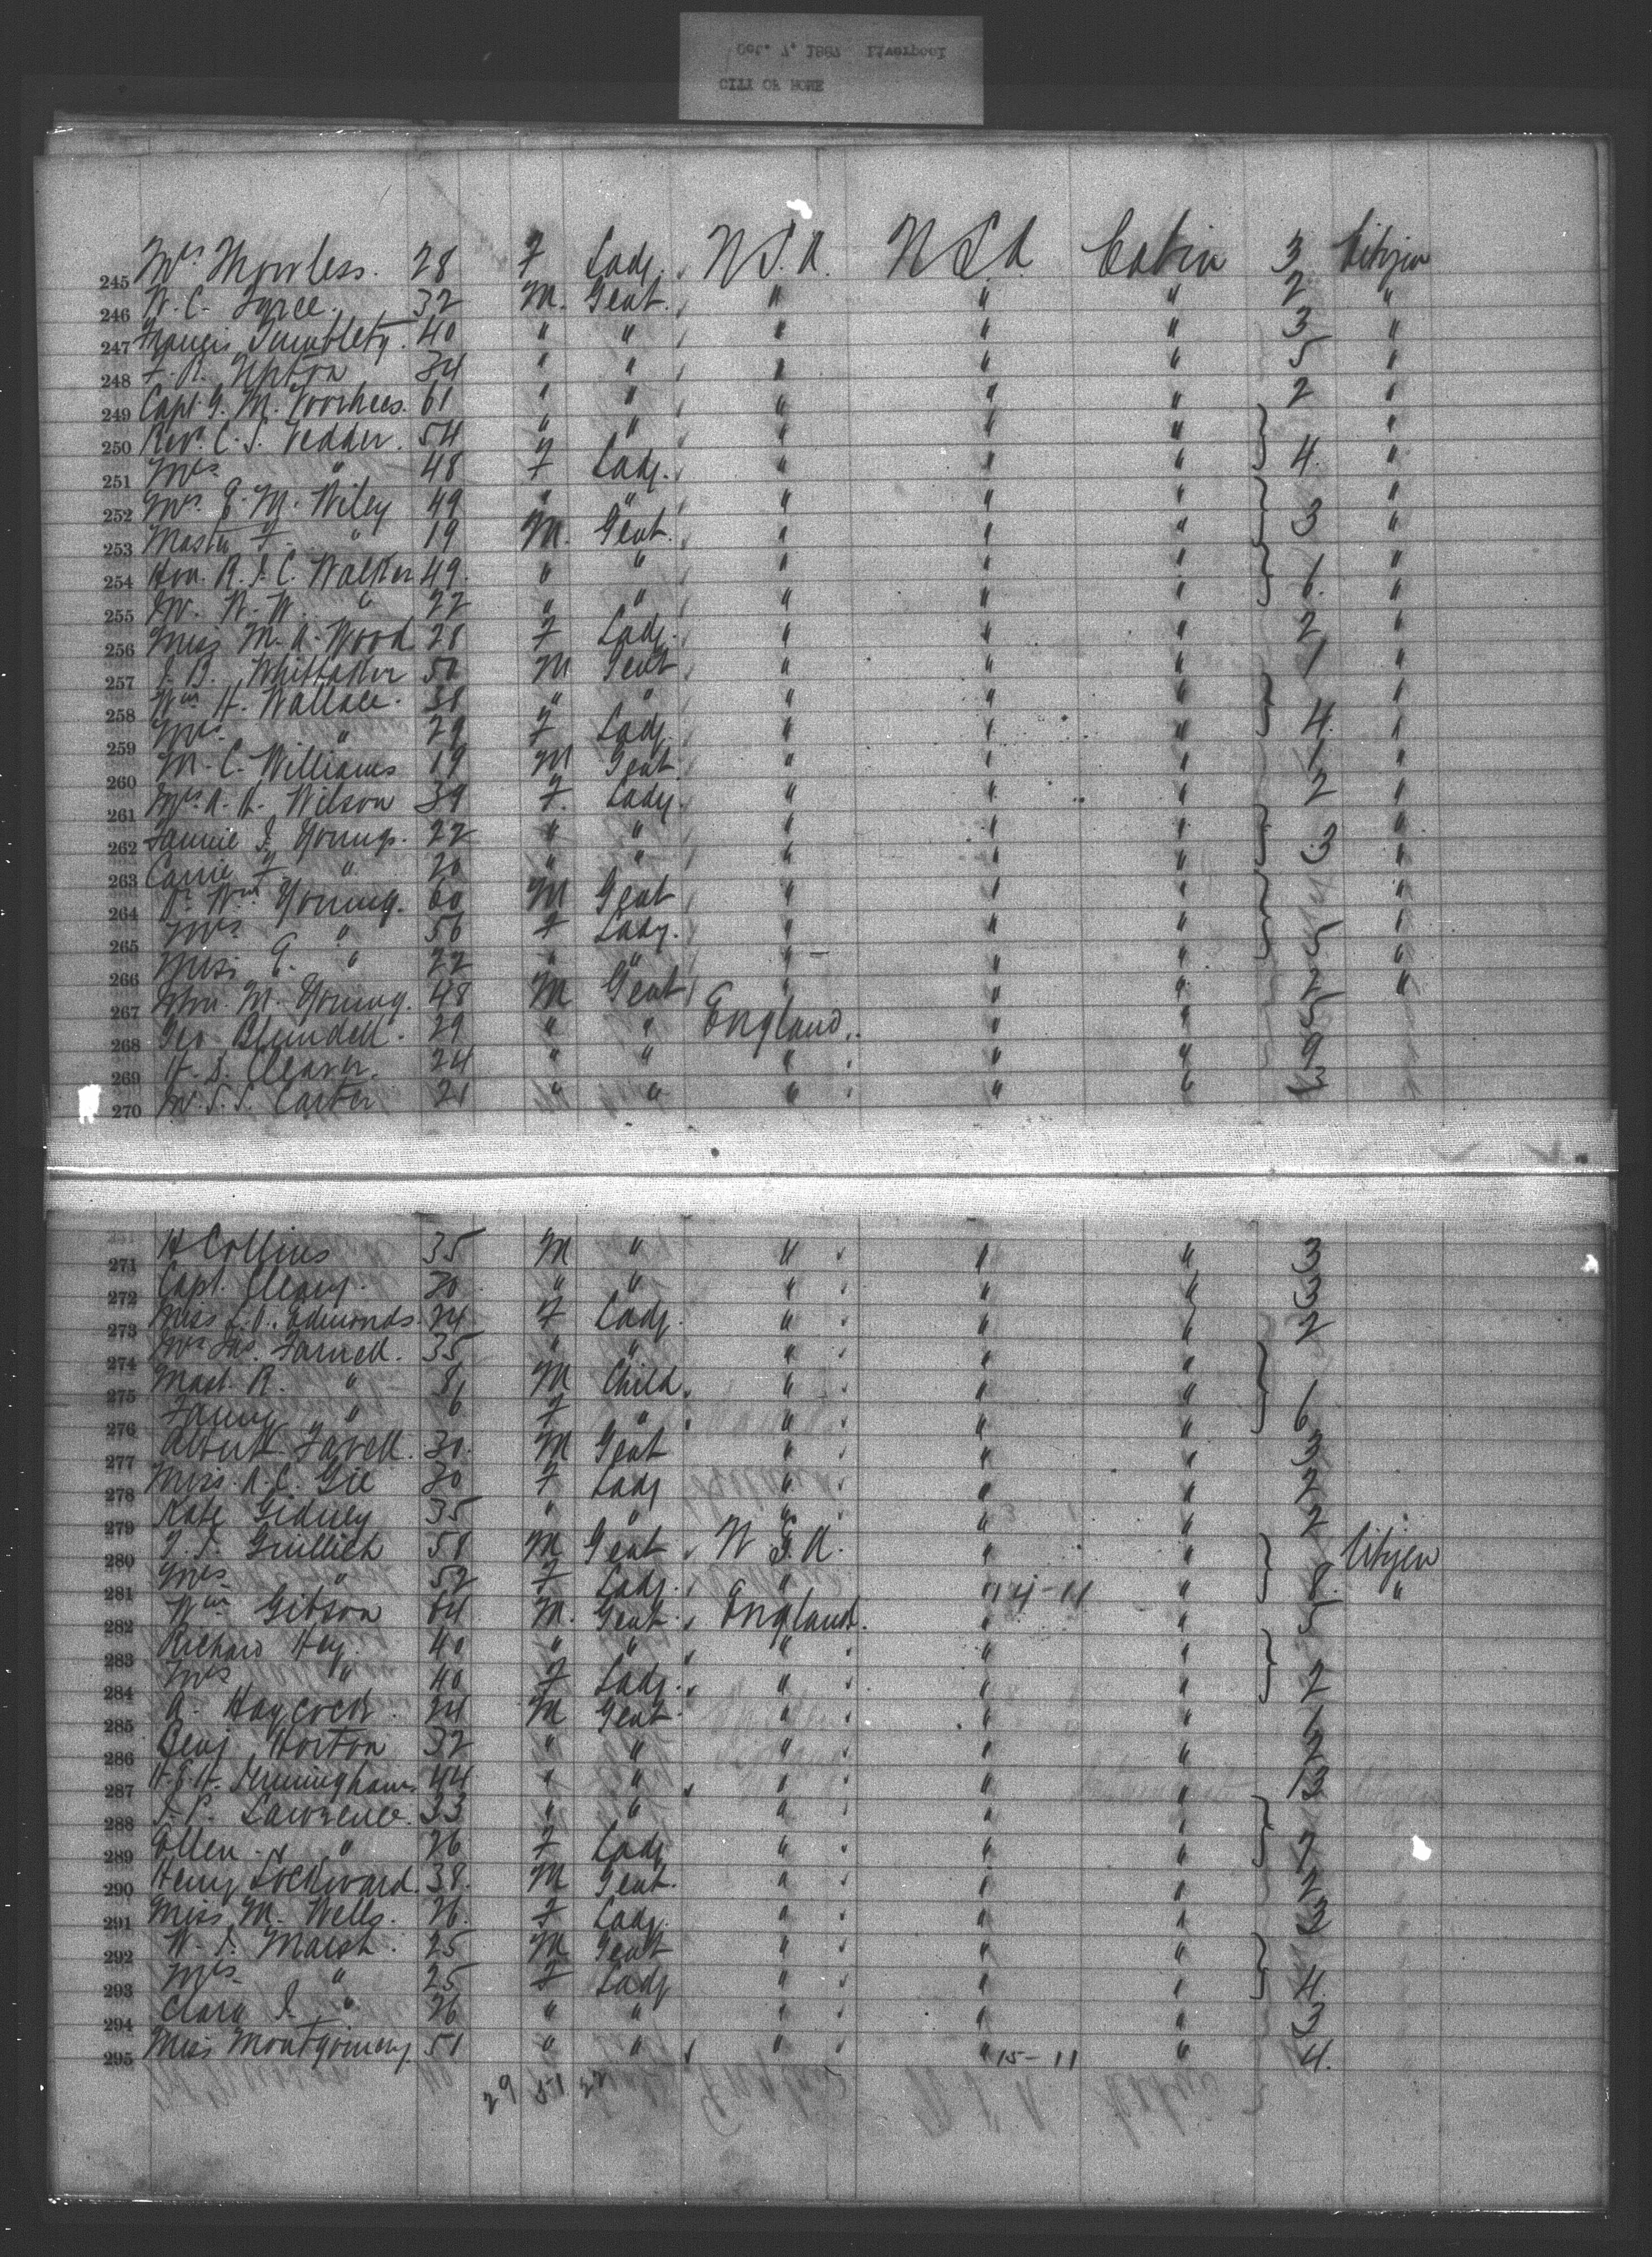 Oct. 7, 1887 Liverpool
CITY OF ROME
245 Mrs 28 F Lady. U.S.A. U.S.A. Cabin 3 Citizen
246 W. C. 32 M. Gent. " " " 2 "
247 Francis Tumblety. 40 " " " " " 3 "
248 F. R. Upton 34 " " " " " 5 "
249 Capt G. M. Voorhees. 61 " " " " " 2 "
250 Rev. C. S. Vedder. 54 " " " " " "
251 Mrs " 48 F Lady. " " " 4. "
252 Mrs E. M. Wiley 49 " " " " " "
253 Master F. " 19 M. Gent. " " " 3 "
254 Hon. R. J. C. Walker 49. " " " " " "
255 Mr. W. W. " 22 " " " " " 6. "
256 Miss M. A. Wood 28 F Lady. " " " 2 "
257 J. B. Whittaker 50 M Gent " " " 1 "
258 Wm H. Wallace. 38 " " " " " "
259 Mrs. " 29 F Lady. " " " 4. "
260 M. C. Williams 19 M Gent " " " 1 "
261 Mrs A. H. Wilson 39 F. Lady. " " " 2 "
262 Fannie Young. 22 " " " " " "
263 Carrie F. " 20 " " " " " 3 "
264 Wm Young. 60 M Gent " " " "
265 Mrs " 56 F Lady. " " " 5 "
266 Miss E. " 22 " " " " " "
267 M. Young. 48 M Gent " " " 2 "
268 Geo Blundell. 29 " " England. " " 5
269 H. S. Cleaver. 24 " " " " " 9
270 Carter 21 " " " " " 3
271 H Collins 35 M " " " " 3
272 Capt. Cleary. 30 " " " " " 3
273 Miss L. A. Edmonds. 24 F Lady. " " " 2
274 Mrs Jas. Farrell. 35 " " " " "
275 Mast. R. " 8 M Child. " " "
276 Fanny " 6 F " " " " 6
277 Albert Favell. 30. M Gent " " " 3
278 Miss. A. C. Gill 30 F Lady " " " 2
279 Kate Gidney 35 " " " " " 2
280 58 M Gent U.S.A. " " Citizen
281 Mrs " 52 F Lady. " " 14-11 " 8. "
282 Wm Gibson 64 M. Gent. England. " " 5
283 Richard Hey. 40 " " " " "
284 Mrs " 40 F Lady. " " " 2
285 A. Haycock. 24 M Gent " " " 1
286 Benj. Horton 32 " " " " " 2
287 44 " " " " " 13
288 J. P. Lawrence. 33 " " " " "
289 Ellen " 26 F Lady " " " 7
290 Henry Lockward. 38. M Gent. " " " 2
291 Miss M. Wells. 26. F Lady. " " " 3
292 W. J. Marsh. 25 M Gent " " "
293 Mrs. " 25 F Lady " " " 4.
294 Clara J. " 26 " " " " " 3
295 Miss Montgomery. 51 " " " " 15-11 " 4.